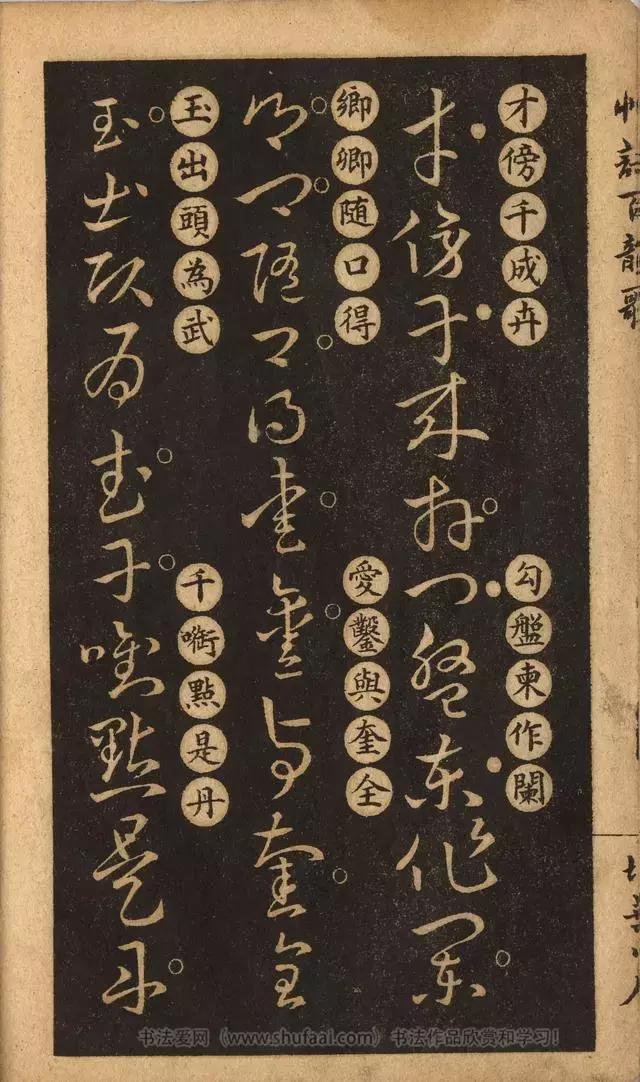 才傍千成卉
勾盤柬作闌
鄉卿随口得
愛鑿與奎全
玉出頭為武
千㗸點是丹
草訣百韻歌
书法爱网（www.shufaai.com）书法作品欣赏和学习！